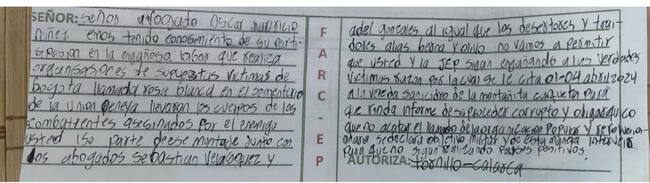 SEÑOR: Señor abogado Oscar mauricio
nuñez emos tenido conosimiento de su parti-
sipasion en la engañosa labor que realiza
organisasiones de supuestas victimas de
bogota llamada rosa blanca en el sementerio
de la union peneya llevaron los cuerpos de los
combatientes asesinados por el enemigo
usted iso parte de ese montaje junto con
los abogados sebastian velasquez y
FARC-EP
adel gonzales al igual que los desertores y trai-
dores alas berna y olivo no vamos a permitir
que usted y la JEP sigan engañando a las verdades
victimas razon por la cual se le cita 01-04 abril 2024
a la vereda sanicidro de la montañita caqueta para
que rinda informe de su proceder corrupto y oligarquico
que no acatar el llamado de la organizacion Popular y revolucion-
onario se declara objetivo militar y de esta manera
Para que no sigan realizando Falsos positivos.
AUTORIZA: Tornillo-calarca